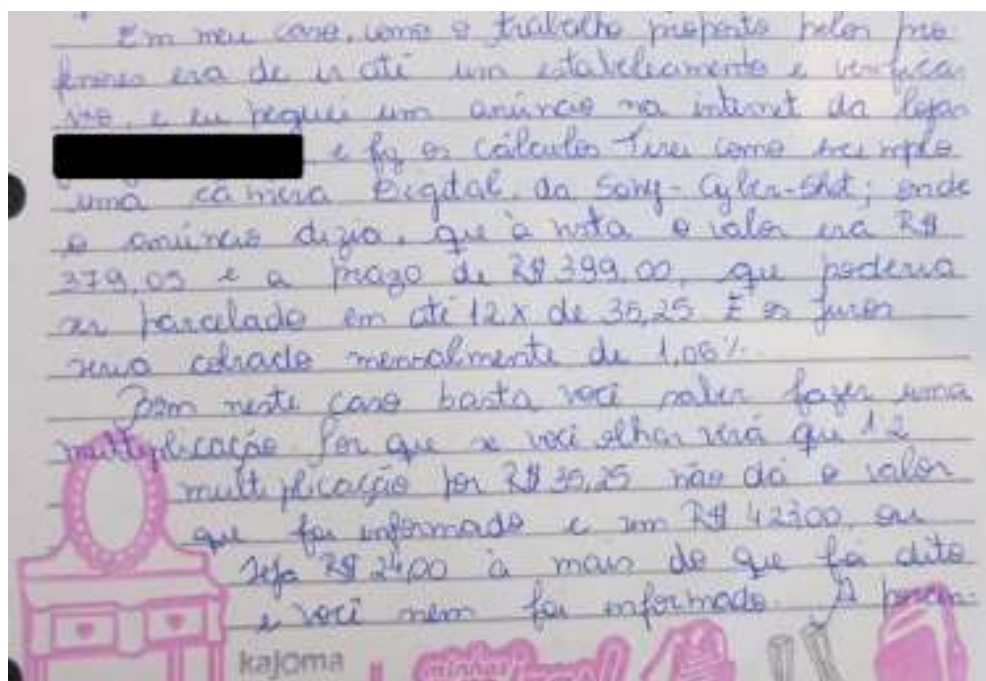 Em meu caso, como o trabalho proposto pelos pro-
fessores era de ir até um estabelecimento e verificar
isso, e eu peguei um anúncio na internet da lojas
e fiz os cálculos Tirei como exemplo
uma câmera Digital da Sony - Cyber-Shot; onde
o anúncio dizia, que à vista o valor era R$
379,05 e a prazo de R$ 399,00, que poderia
ser parcelado em até 12x de 35,25 E os juros
seria cobrado mensalmente de 1,06%.
Bom neste caso basta você saber fazer uma
multiplicação Por que se você olhar verá que 12
multiplicação por R$ 35,25 não dá o valor
que foi informado e sim R$ 423,00, ou
seja R$ 24,00 à mais do que foi dito
e você nem foi informado. A porcen-
kajoma
minhas